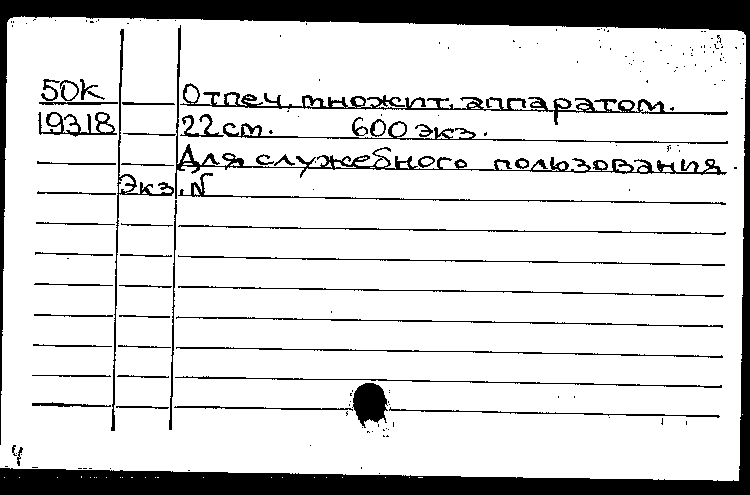 50К Отпеч. множит. аппаратом.
19318 22 см. 600 экз.
Для служебного пользования.
Экз. N
4